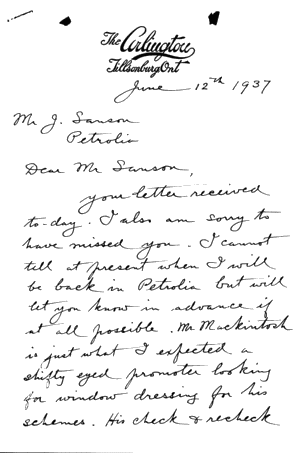 The Arlington
Tillsonburg Ont
June 12th 1937
Mr J. Sanson
Petrolia
Dear Mr Sanson,
your letter received
to-day. I also am sorry to
have missed you. I cannot
tell at present when I will
be back in Petrolia but will
let you know in advance if
at all possible. Mr Mackintosh
is just what I expected a
shifty eyed promoter looking
for window dressing for his
schemes. His check & recheck